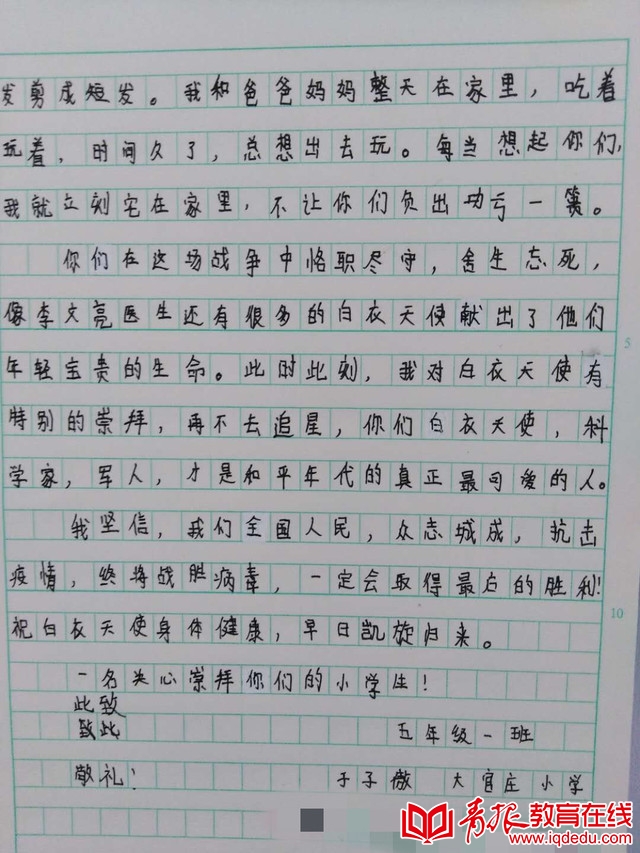 发剪成短发。我和爸爸妈妈整天在家里，吃着
玩着，时间久了，总想出去玩。每当想起你们，
我就立刻宅在家里，不让你们负出功亏一篑。
你们在这场战争中恪职尽守，舍生忘死，
像李文亮医生还有很多的白衣天使献出了他们
5
年轻宝贵的生命。此时此刻，我对白衣天使有
特别的崇拜，再不去追星，你们白衣天使，科
学家，军人，才是和平年代的真正最可爱的人。
我坚信，我们全国人民，众志城成，抗击
疫情，终将战胜病毒，一定会取得最后的胜利！
10
祝白衣天使身体健康，早日凯旋归来。
一名关心崇拜你们的小学生！
此致
致此 五年级一班
敬礼！ 于子傲 大官庄小学
青报教育在线
www.iqdedu.com